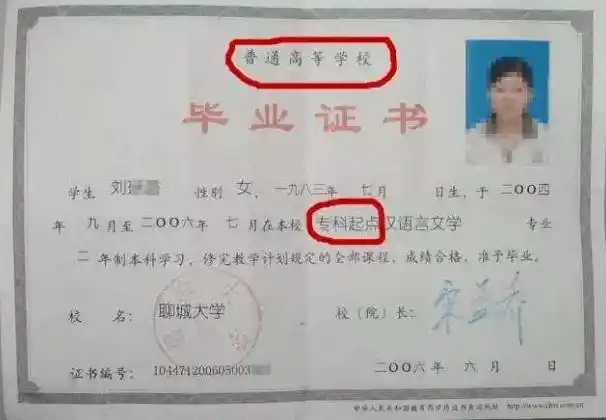 普通高等学校
毕业证书
学生 刘 性别 女、一九八三年 七月 日生，于 二〇〇四
年 九月至二〇〇六年 七月在本校 专科起点汉语言文学 专业
二 年制本科学习，修完教学计划规定的全部课程，成绩合格，准予毕业。
校 名： 聊城大学 校（院）长：
证书编号： 104471200605003 二〇〇六年 六月 日
中华人民共和国教育部学历证书查询网站 http://www.chsi.com.cn